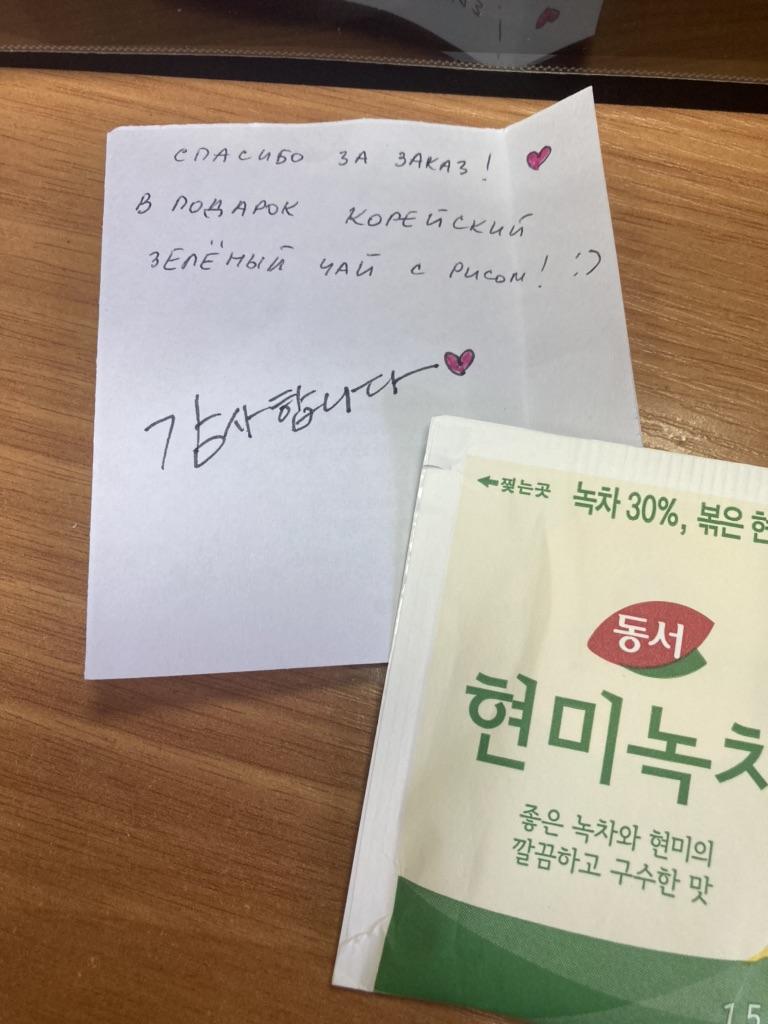 СПАСИБО ЗА ЗАКАЗ!
В ПОДАРОК КОРЕЙСКИЙ
ЗЕЛЁНЫЙ ЧАЙ С РИСОМ! :)
감사합니다
찢는곳 녹차 30%, 볶은 현
동서
현미녹차
좋은 녹차와 현미의
깔끔하고 구수한 맛
1.5